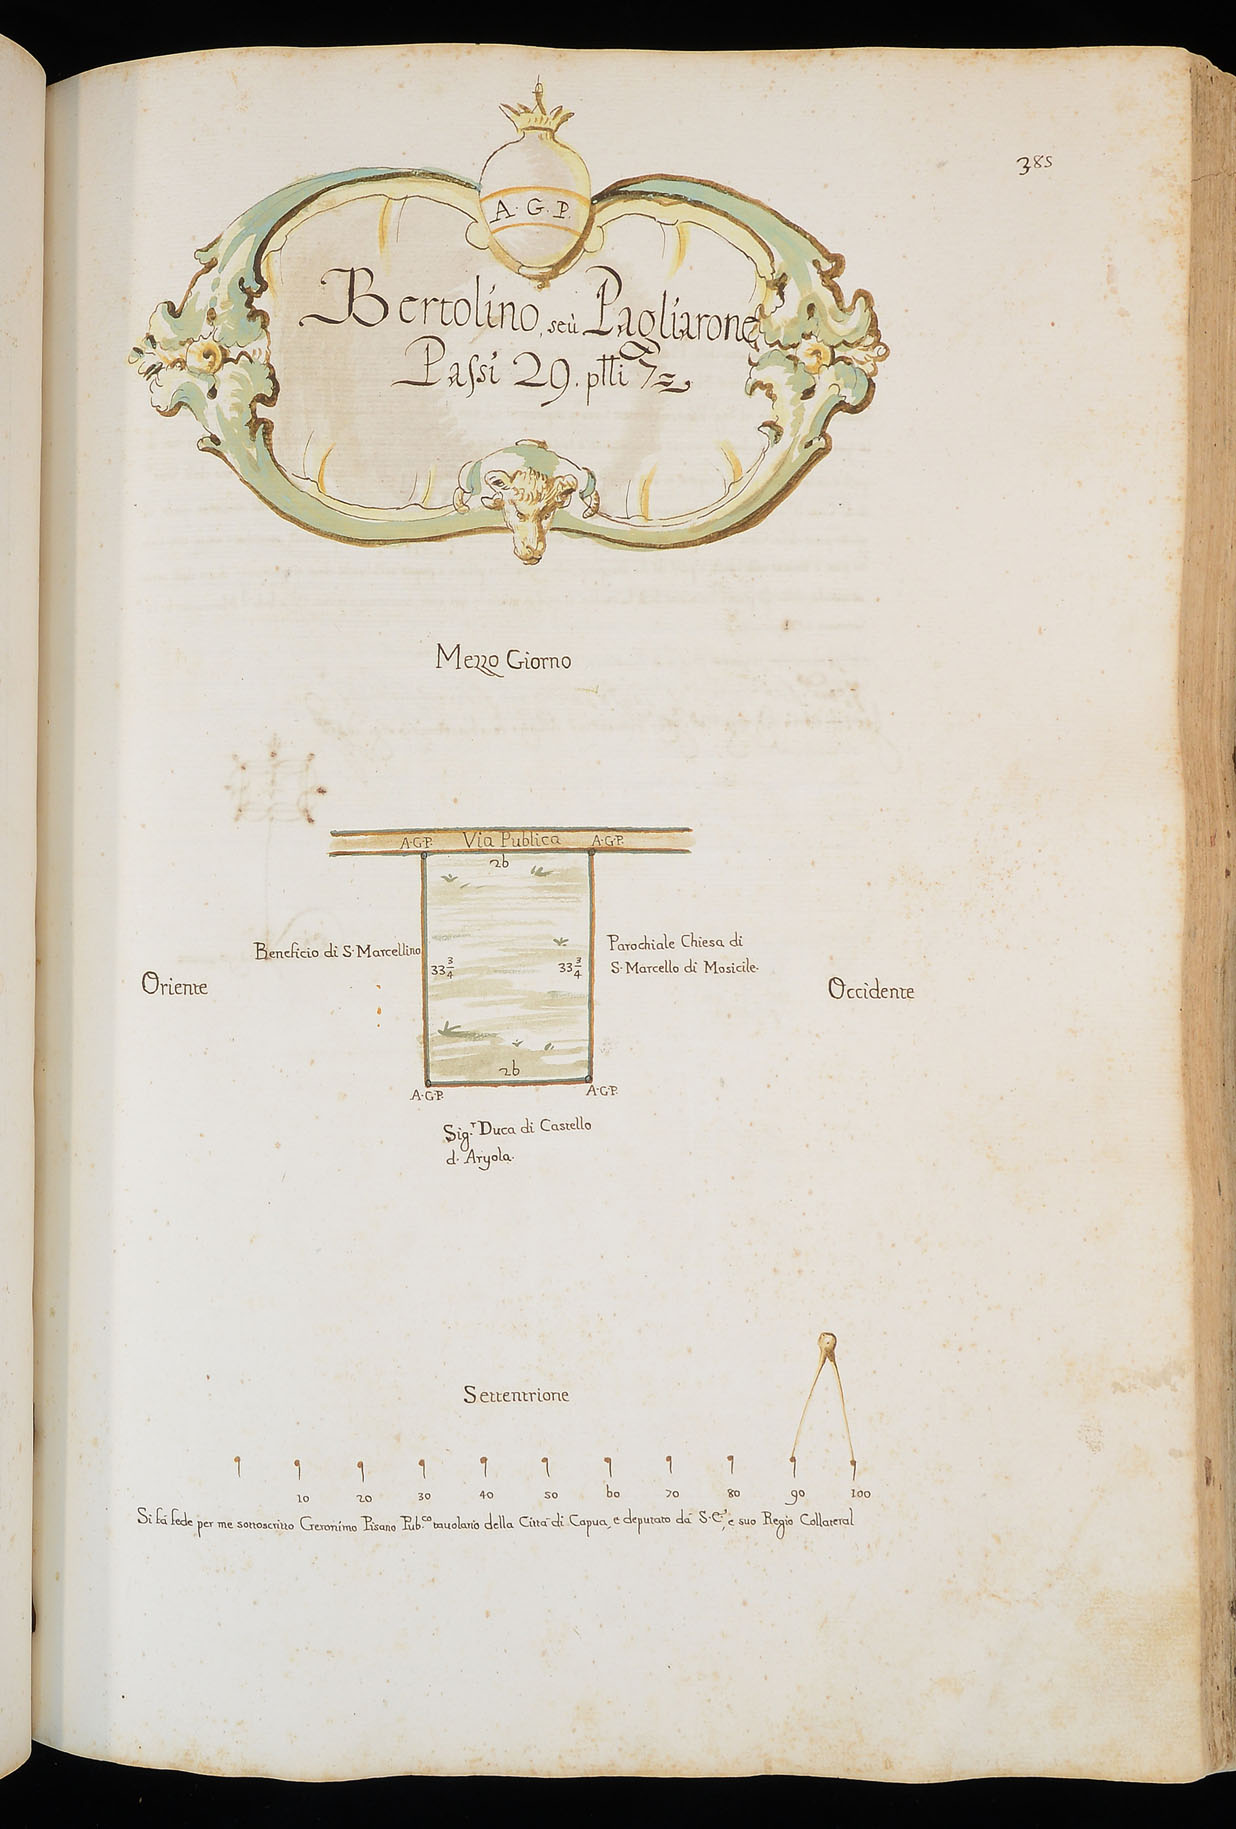 385
A·G·P.
Bertolino, seù Pagliarone
Passi 29. ptti 7
Mezzo Giorno
A·G·P. Via Publica A·G·P.
26
Beneficio di S· Marcellino
Parochiale Chiesa di
S· Marcello di Mosicile·
33 3/4 33 3/4
Oriente
Occidente
26
A·G·P. A·G·P.
Sig.r Duca di Castello
d· Aryola·
Settentrione
10 20 30 40 50 60 70 80 90 100
Si fà fede per me sottoscritto Geronimo Pisano Pub.co tauolario della Città di Capua, e deputato da S·E·, e suo Regio Collateral